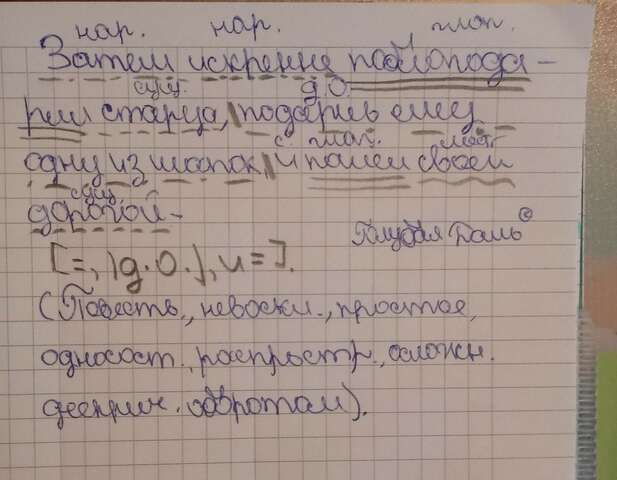 нар. нар. глаг.
Затем искренне поблагода-
сущ. д.О.
рил старца, |подарив ему
с. глаг. мест.
одну из шапок,| и пошел своей
сущ.
дорогой.
Голубая Даль ©
[=, |д.О.|, и =].
(Повеств., невоскл., простое,
односост., распростр., осложн.
дееприч. оборотом).